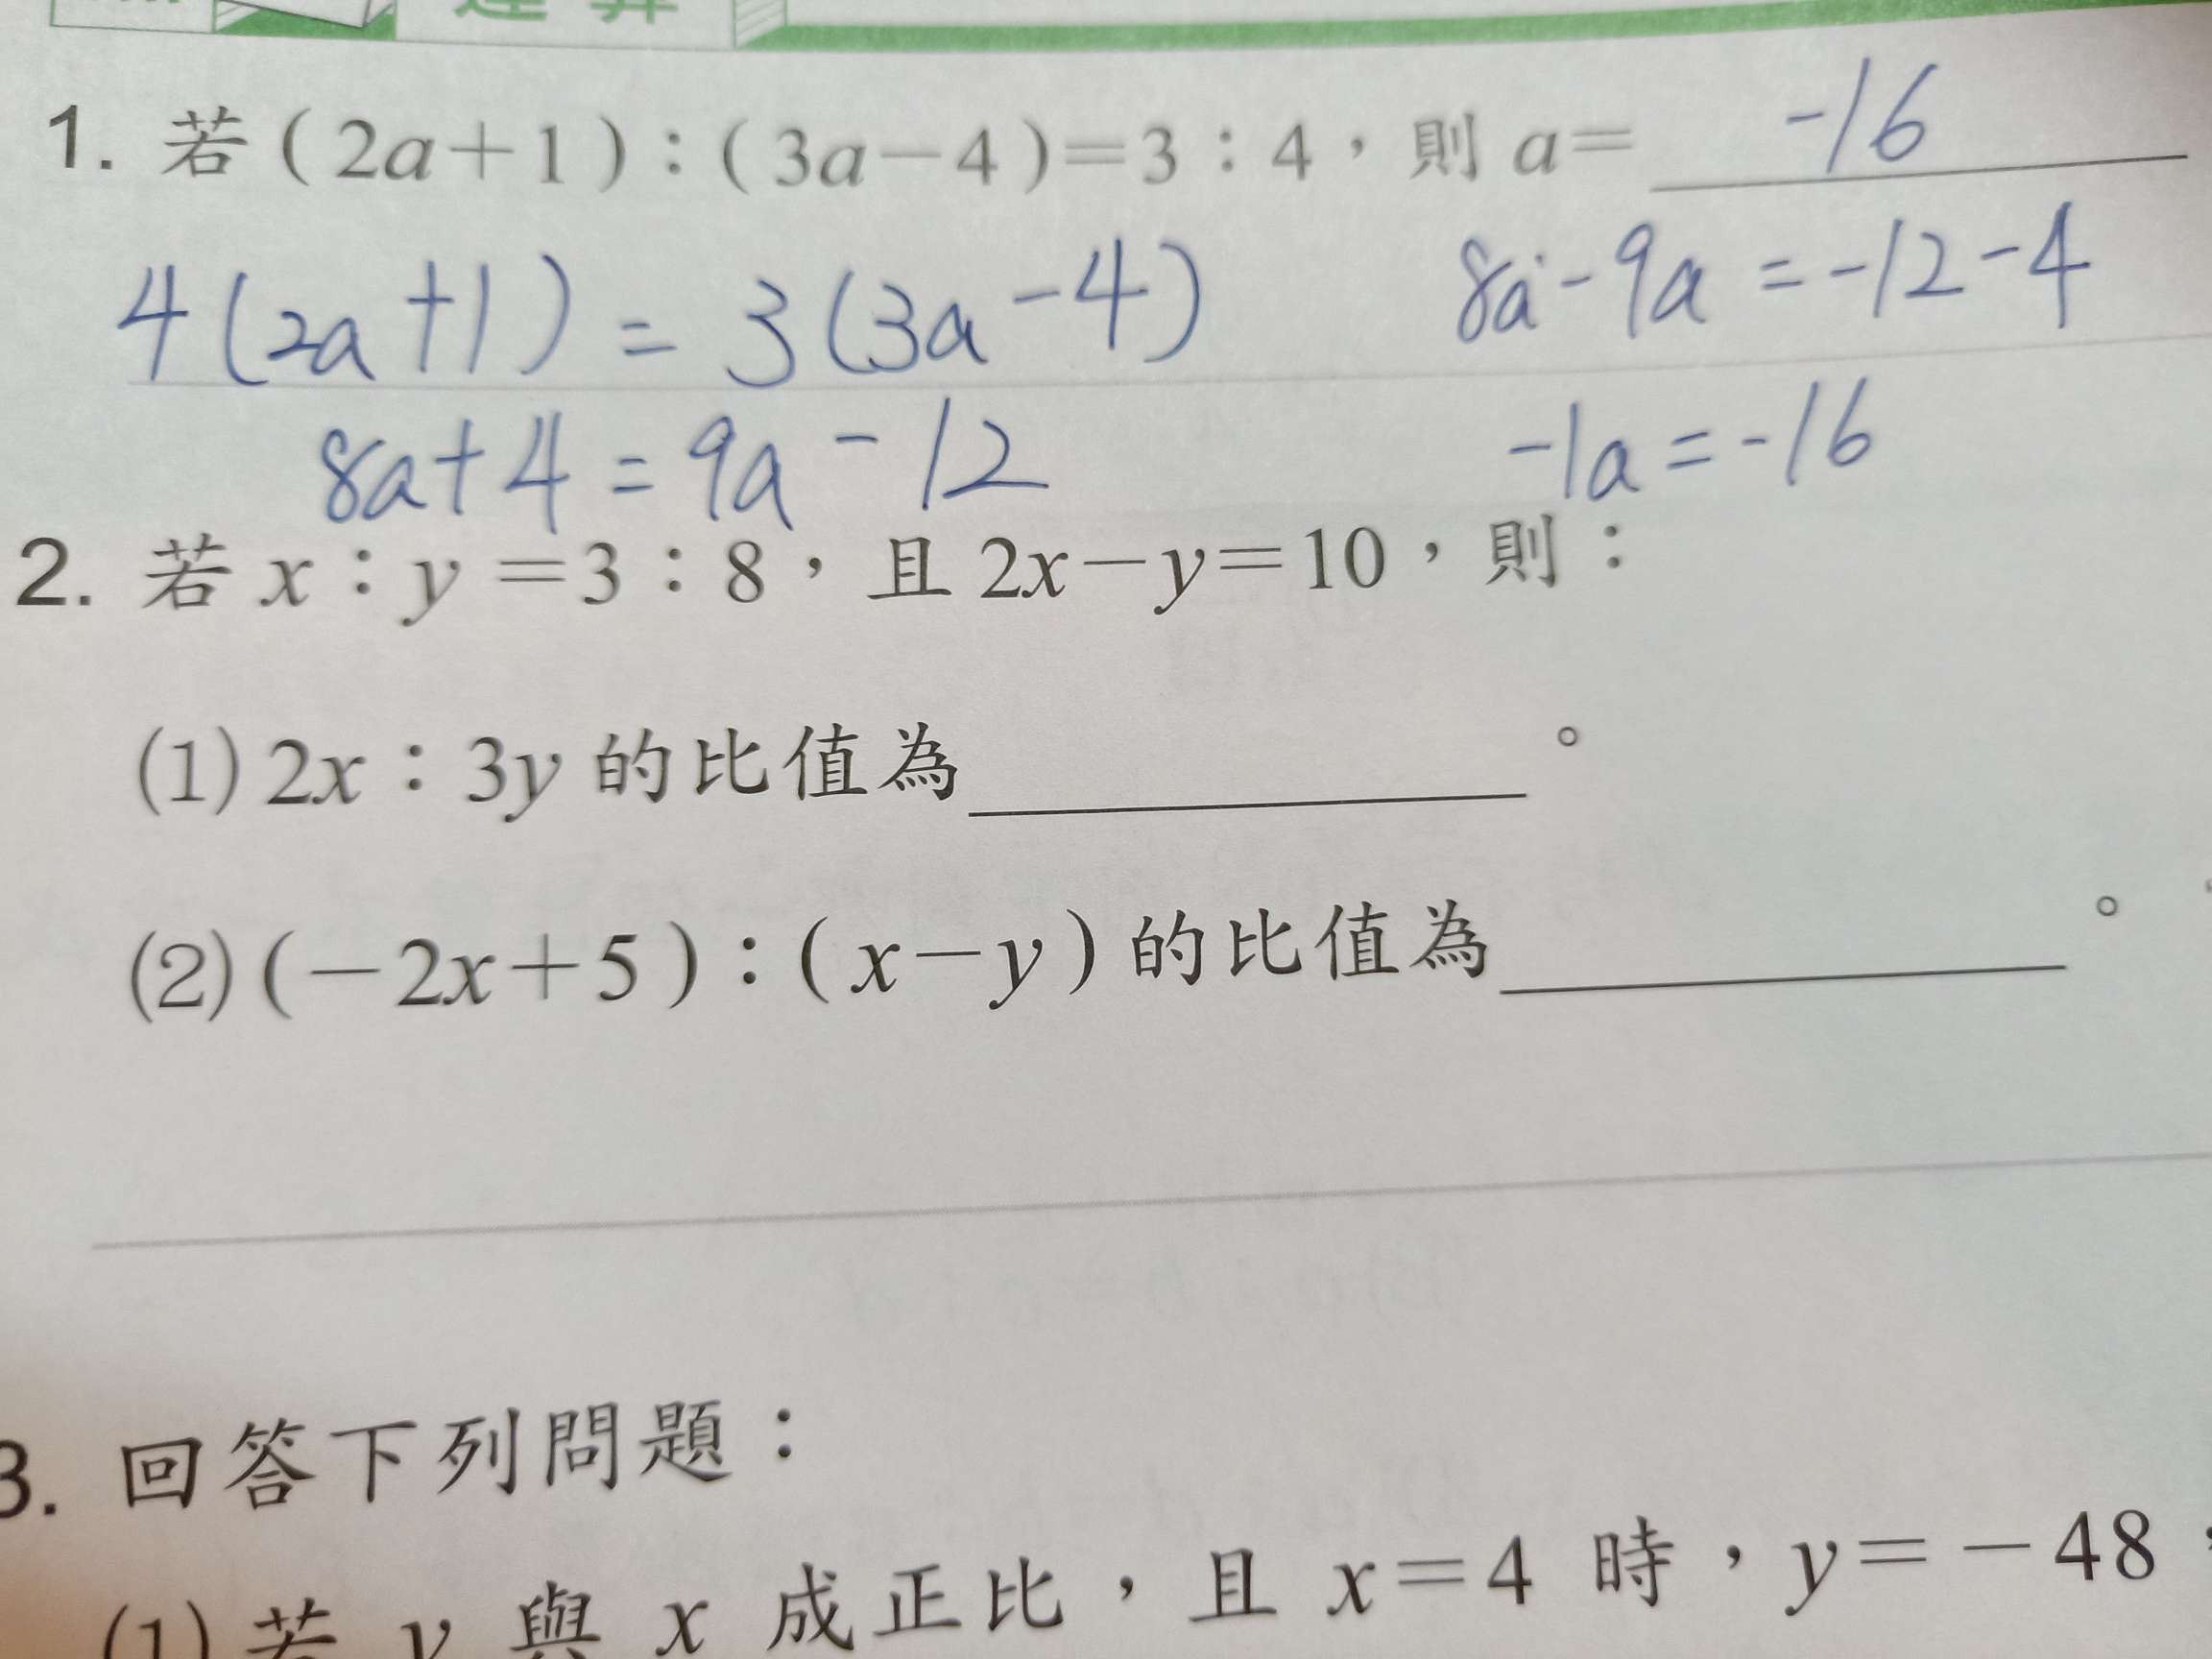 運算
1. 若(2a+1):(3a-4)=3:4,則 a= -16
4(2a+1)=3(3a-4)
8a-9a=-12-4
8a+4=9a-12
-1a=-16
2. 若 x:y=3:8,且 2x-y=10,則:
(1) 2x:3y 的比值為______。
(2)(-2x+5):(x-y)的比值為______。
3. 回答下列問題:
(1) 若 y 與 x 成正比,且 x=4 時,y=-48